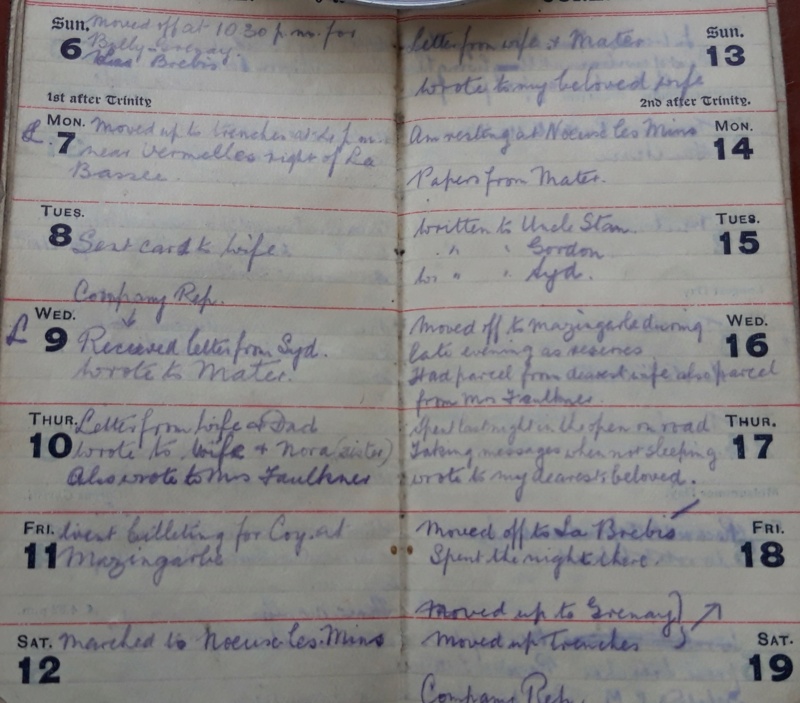 Sun.
6
Moved off at 10.30 p.m. for
Bully-Grenay.
Les Brebis.
1st after Trinity
L.
MON.
7
Moved up to trenches at 4 p.m.
near Vermelles right of La
Bassee.
TUES.
8
Sent card to wife.
Company Rep.
L
WED.
9
Received letter from Syd.
Wrote to Mater.
THUR.
10
Letter from wife & Dad
Wrote to wife & Nora (sister)
Also wrote to Mrs Faulkner
FRI.
11
Went billeting for Coy. at
Mazingarbe
SAT.
12
Marched to Noeux les Mins
Sun.
13
Letter from wife & Mater
Wrote to my beloved wife
2nd after Trinity.
MON.
14
Am resting at Noeux les Mins
Papers from Mater.
TUES.
15
Written to Uncle Stan
" " Gordon
" " Syd.
WED.
16
Moved off to Mazingarbe during
late evening as reserves
Had parcel from dearest wife also parcel
from Mrs Faulkner.
THUR.
17
Spent last night in the open on road
Taking messages when not sleeping
Wrote to my dearest beloved.
FRI.
18
Moved off to La Brebis
Spent the night there.
Moved up to Grenay
SAT.
19
Moved up trenches
Company Rep.